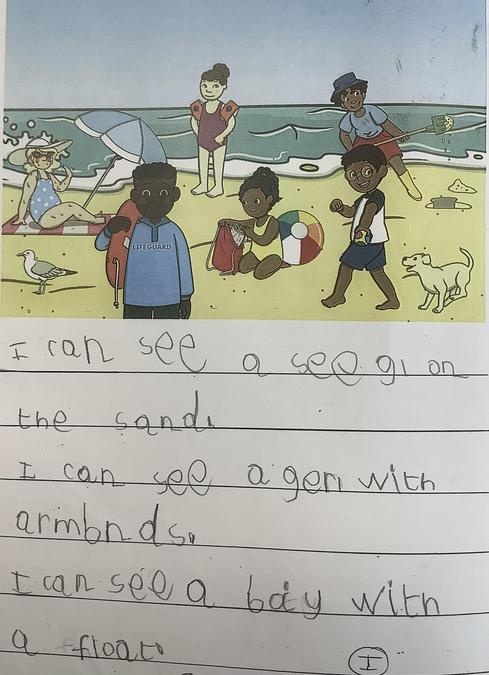 LIFEGUARD
I can see a see gi on
the sand.
I can see a gen with
armbnds.
I can see a bay with
a float
I